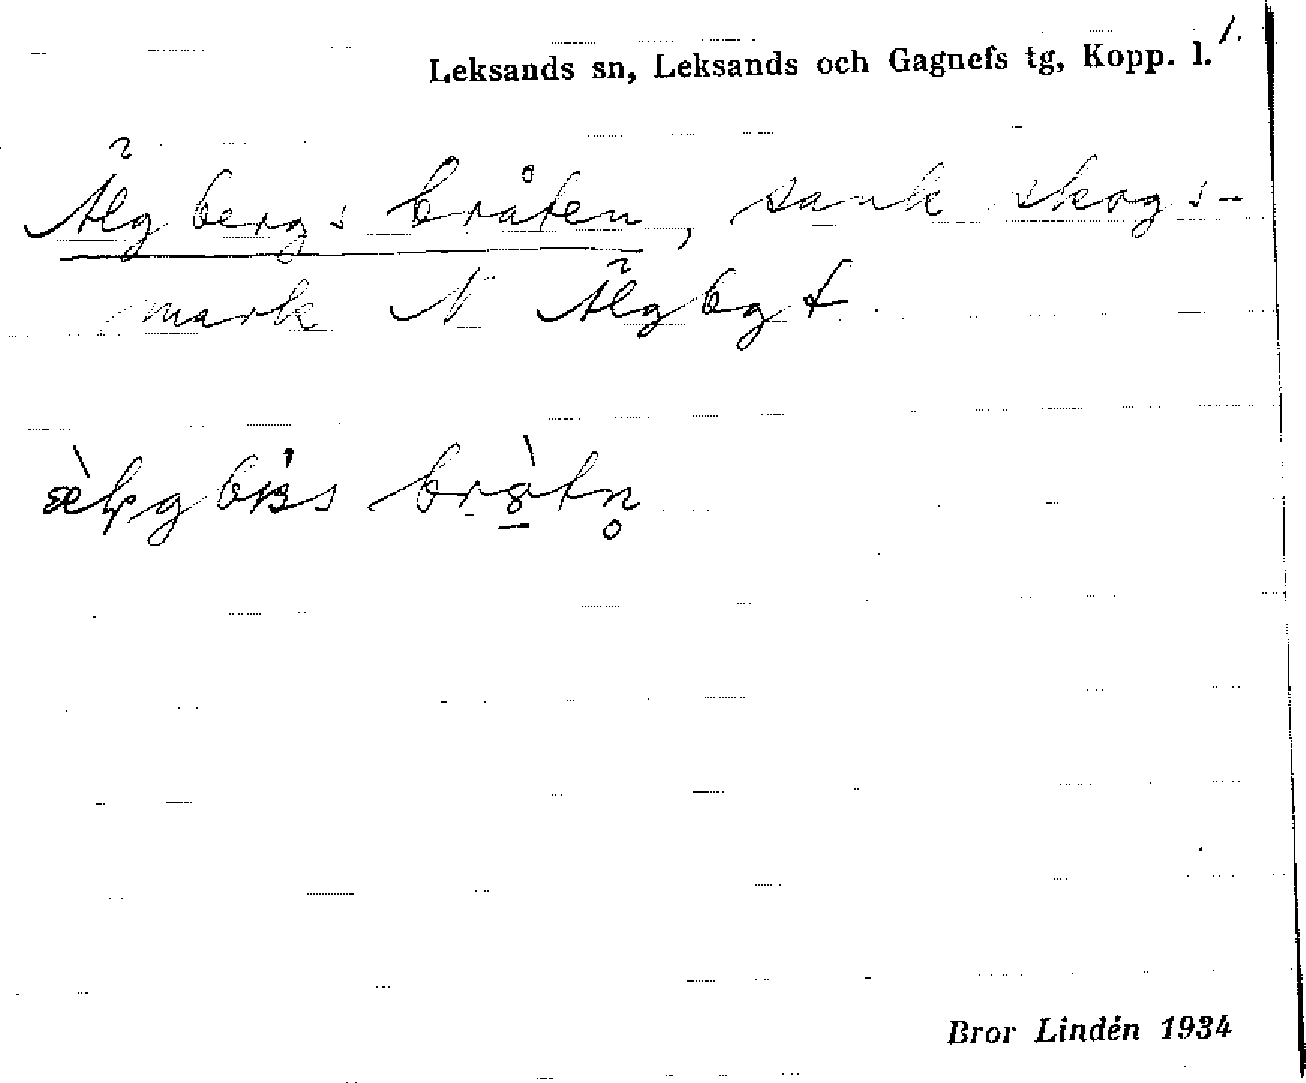 Leksands sn, Leksands och Gagnefs tg, Kopp. l. 1.
Älgbergsbråten, sank skogs-
mark N Älgbgt.
Bror Lindén 1934